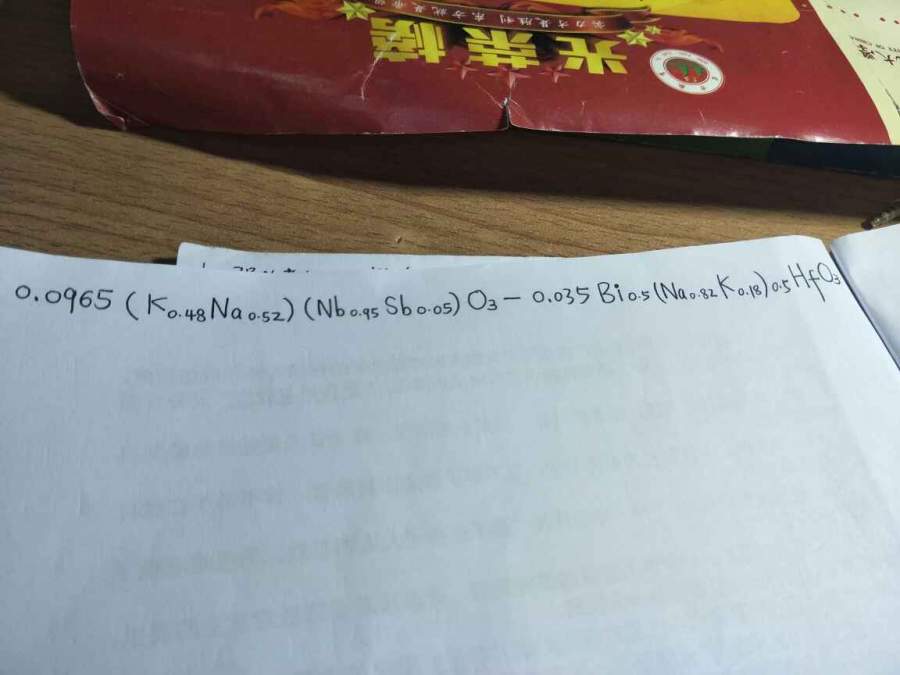 光荣榜
实力才是胜利 东方就是希望
0.0965 (K0.48Na0.52) (Nb0.95Sb0.05) O3 - 0.035 Bi0.5(Na0.82K0.18)0.5HfO3